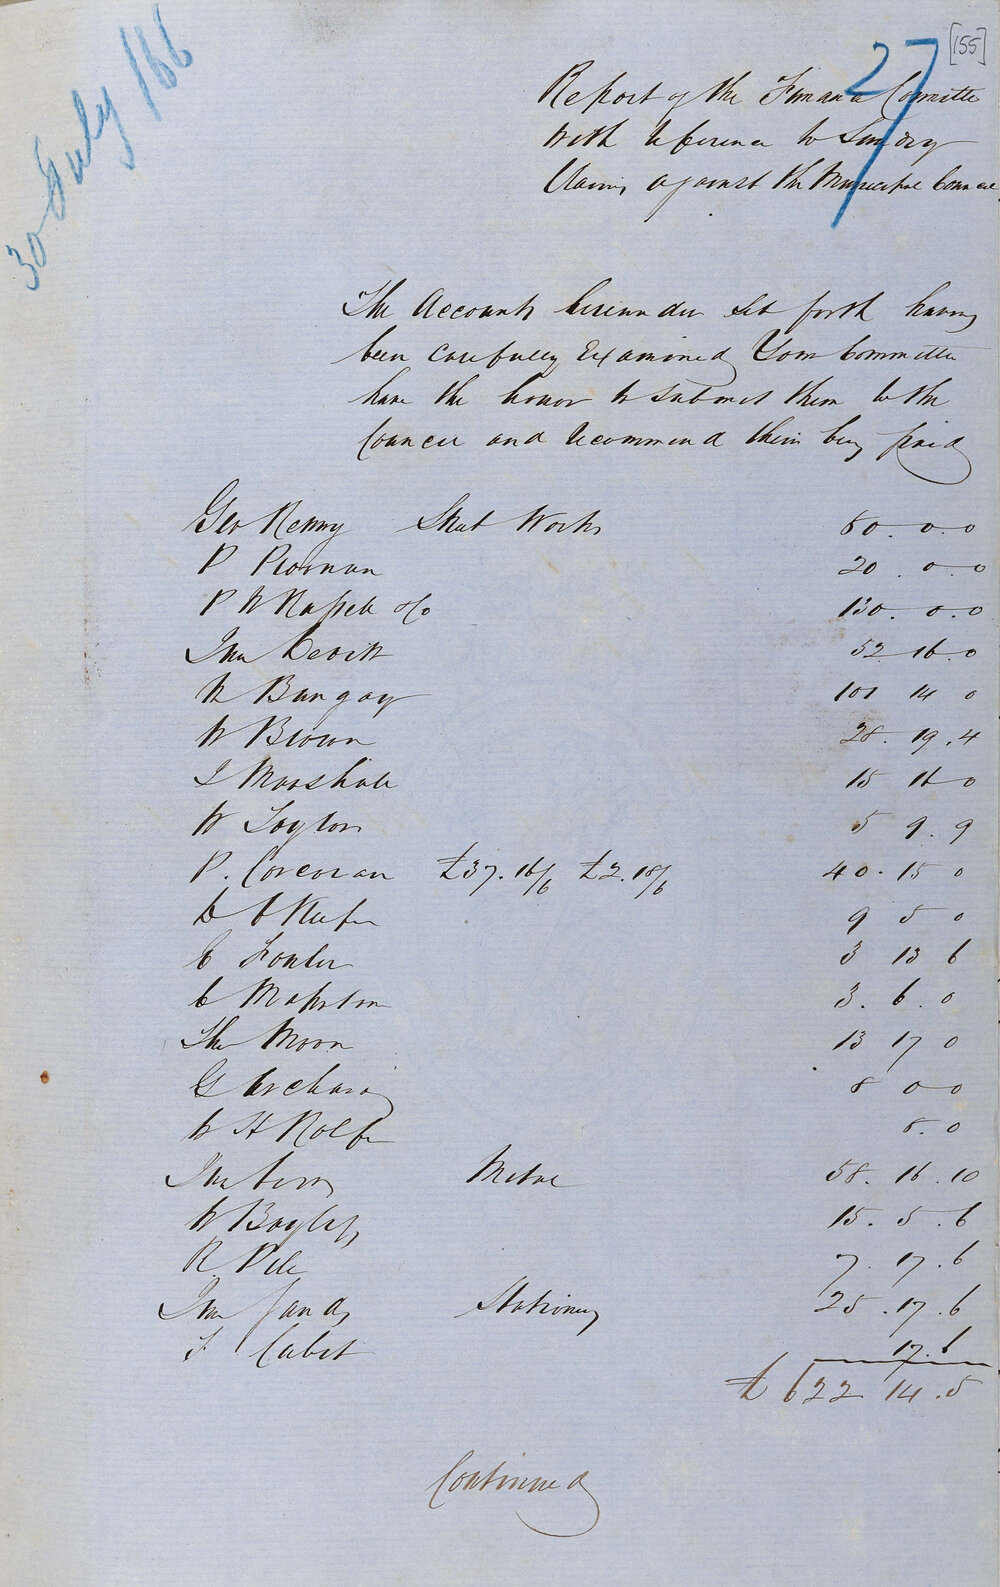 [155]
27
30 July /66
Report of the Finance Committee
with reference to Sundry
Claims against the Municipal Council
The Accounts hereunder set forth having
been carefully Examined Your Committee
have the honor to submit them to the
Council and recommend their being paid
Geo Renny Street Works 80. 0. 0
P 20. 0. 0
P N Russell & Co 130. 0. 0
Jno 52 16 0
W Bungay 101 14 0
W Brown 28. 19. 4
J Marshall 15 16 0
W Taylor 5 9. 9
P. Corcoran £37. 16/6 £2. 18/6 40. 15 0
D O'Keefe 9 5 0
C Fowler 3 13 6
C Marston 3. 6. 0
Tho Moon 13 17 0
G 8 0 0
W H Rolfe 8. 0
Jno Metal 58. 16. 10
W Bayliss 15. 5. 6
R. Pile 7. 17. 6
Jno Sands Stationery 25. 17. 6
T Cubit 17. 6
£ 622 14. 5
Continued